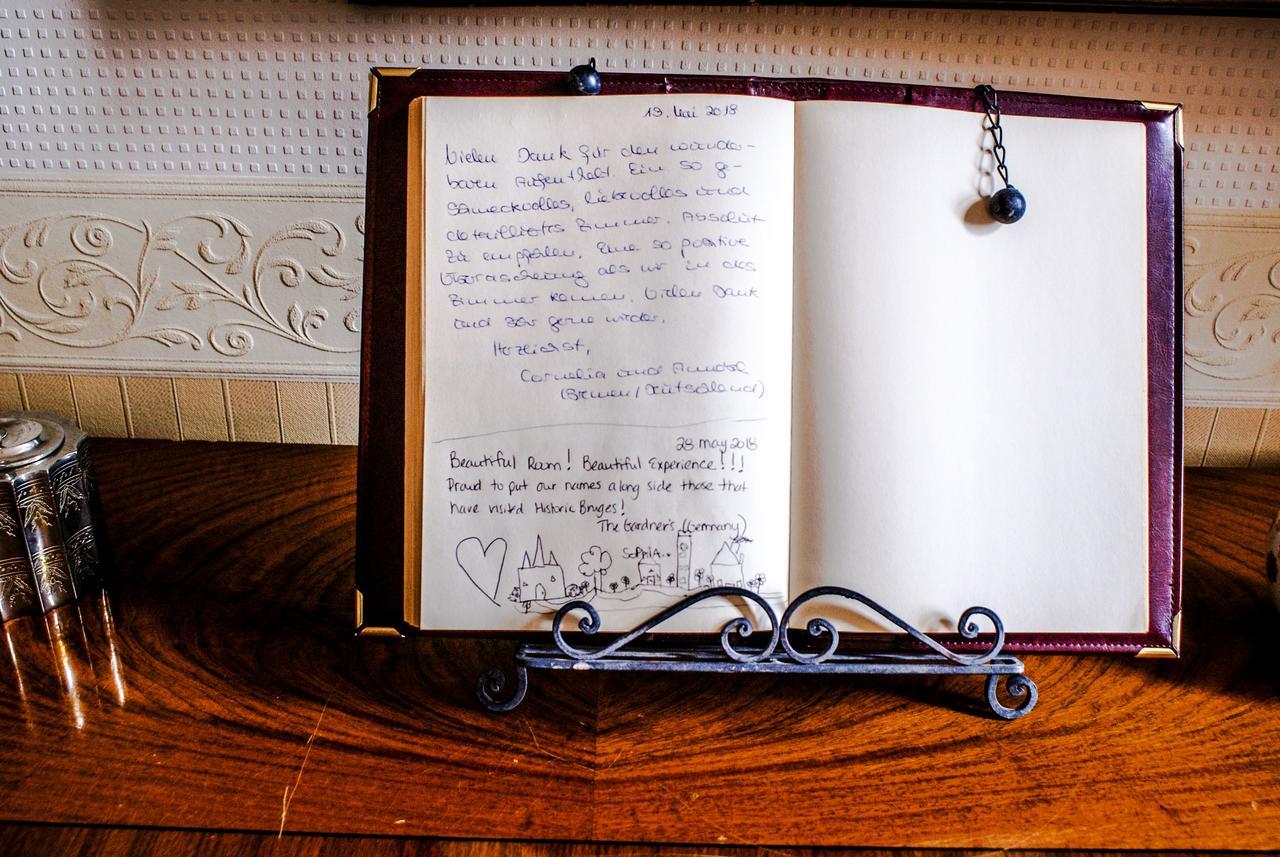 19. Mai 2018
Vielen Dank für den wunder-
baren Aufenthalt. Ein so ge-
schmeckvolles, liebevolles und
detailliertes Zimmer. Absolut
zu empfehlen. Eine so positive
Überraschung als wir in das
Zimmer kamen. Vielen Dank
und sehr gerne wieder.
Herzlichst,
Cornelia und
(Bremen/Deutschland)
28 may 2018
Beautiful Room! Beautiful Experience!!!
Proud to put our names along side those that
have visited Historic Bruges!
The Gardner's (Germany)
SOPHIA..